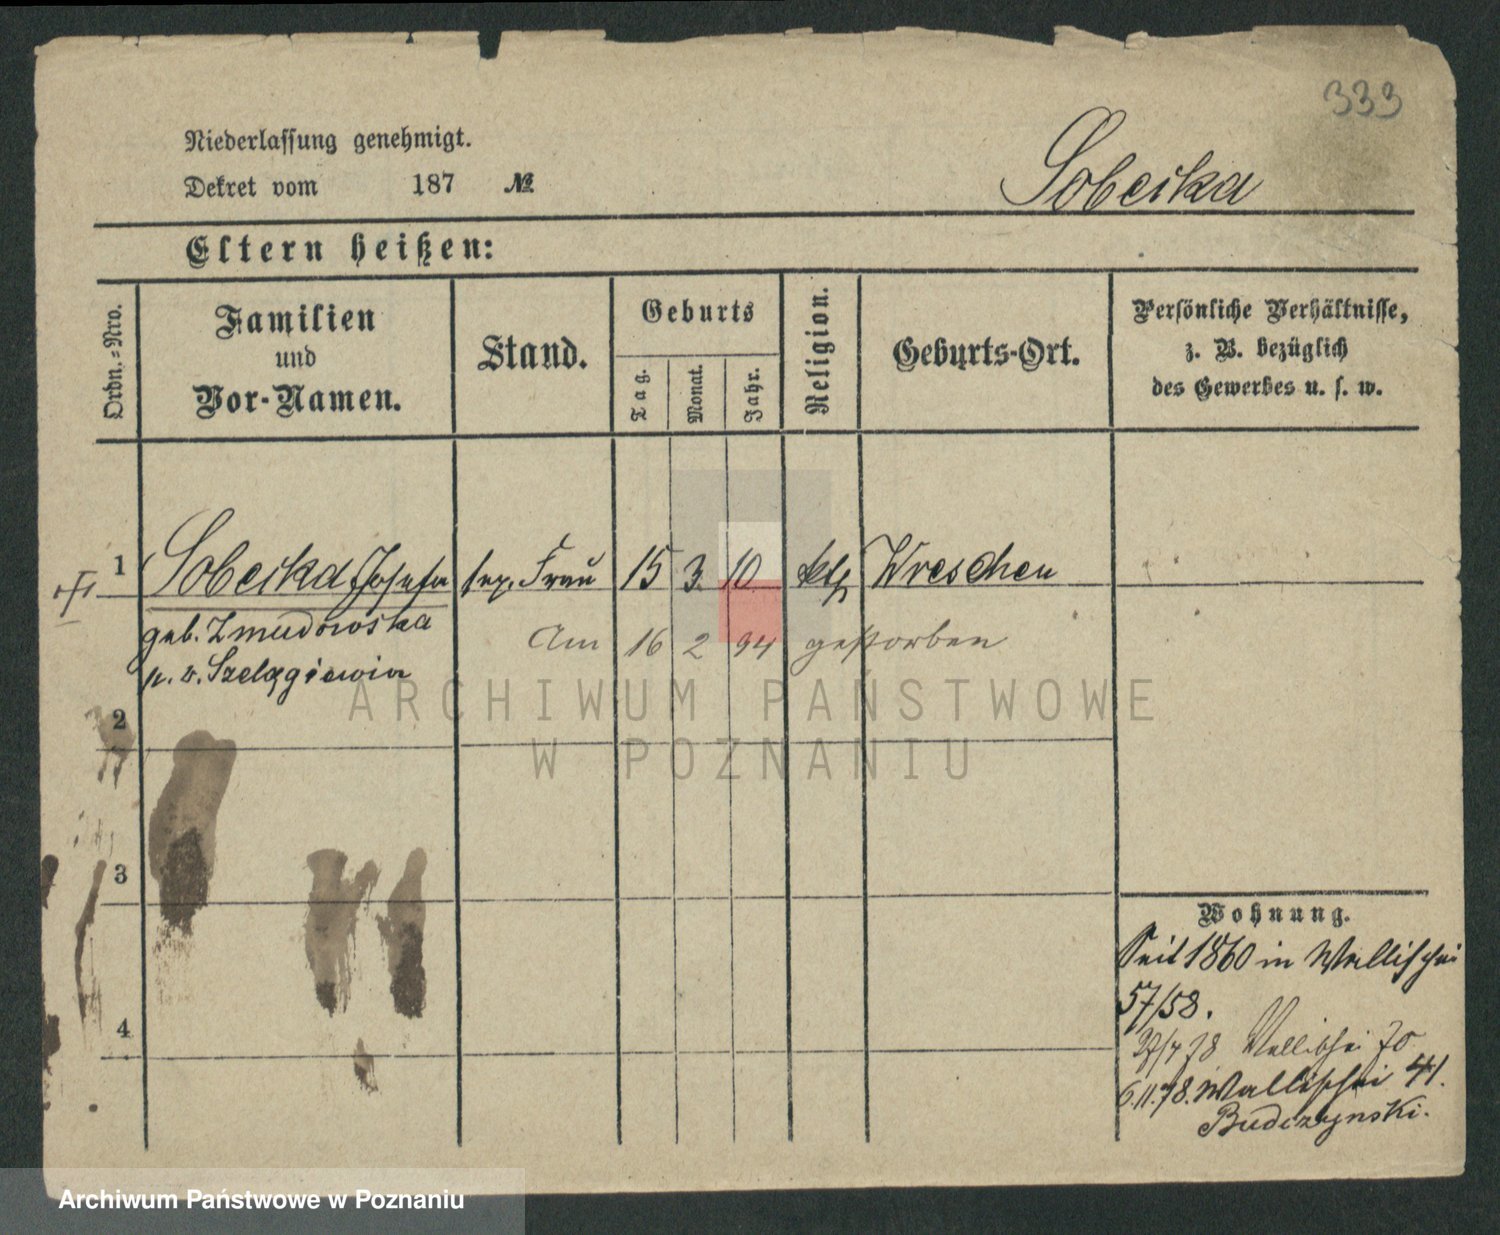 333
Niederlassung genehmigt.
Dekret vom 187 №
Sobecka
Eltern heißen:
Ordn.-Nro.
Familien
und
Vor-Namen.
Stand.
Geburts
Tag.
Monat.
Jahr.
Religion.
Geburts-Ort.
Persönliche Verhältnisse,
z. B. bezüglich
des Gewerbes u. s. w.
1 Sobecka Josefa sep. Frau 15 3. 10 ktl Wreschen
geb. Zmudowska
Am 16 2 94 gestorben
Szelągiewicz
ARCHIWUM PAŃSTWOWE
W POZNANIU
2
3
4
Wohnung.
Seit 1860 in Wallischei
57/58.
78 Wallischei 70
6.11.78. Wallischei 41.
Budczynski.
Archiwum Państwowe w Poznaniu